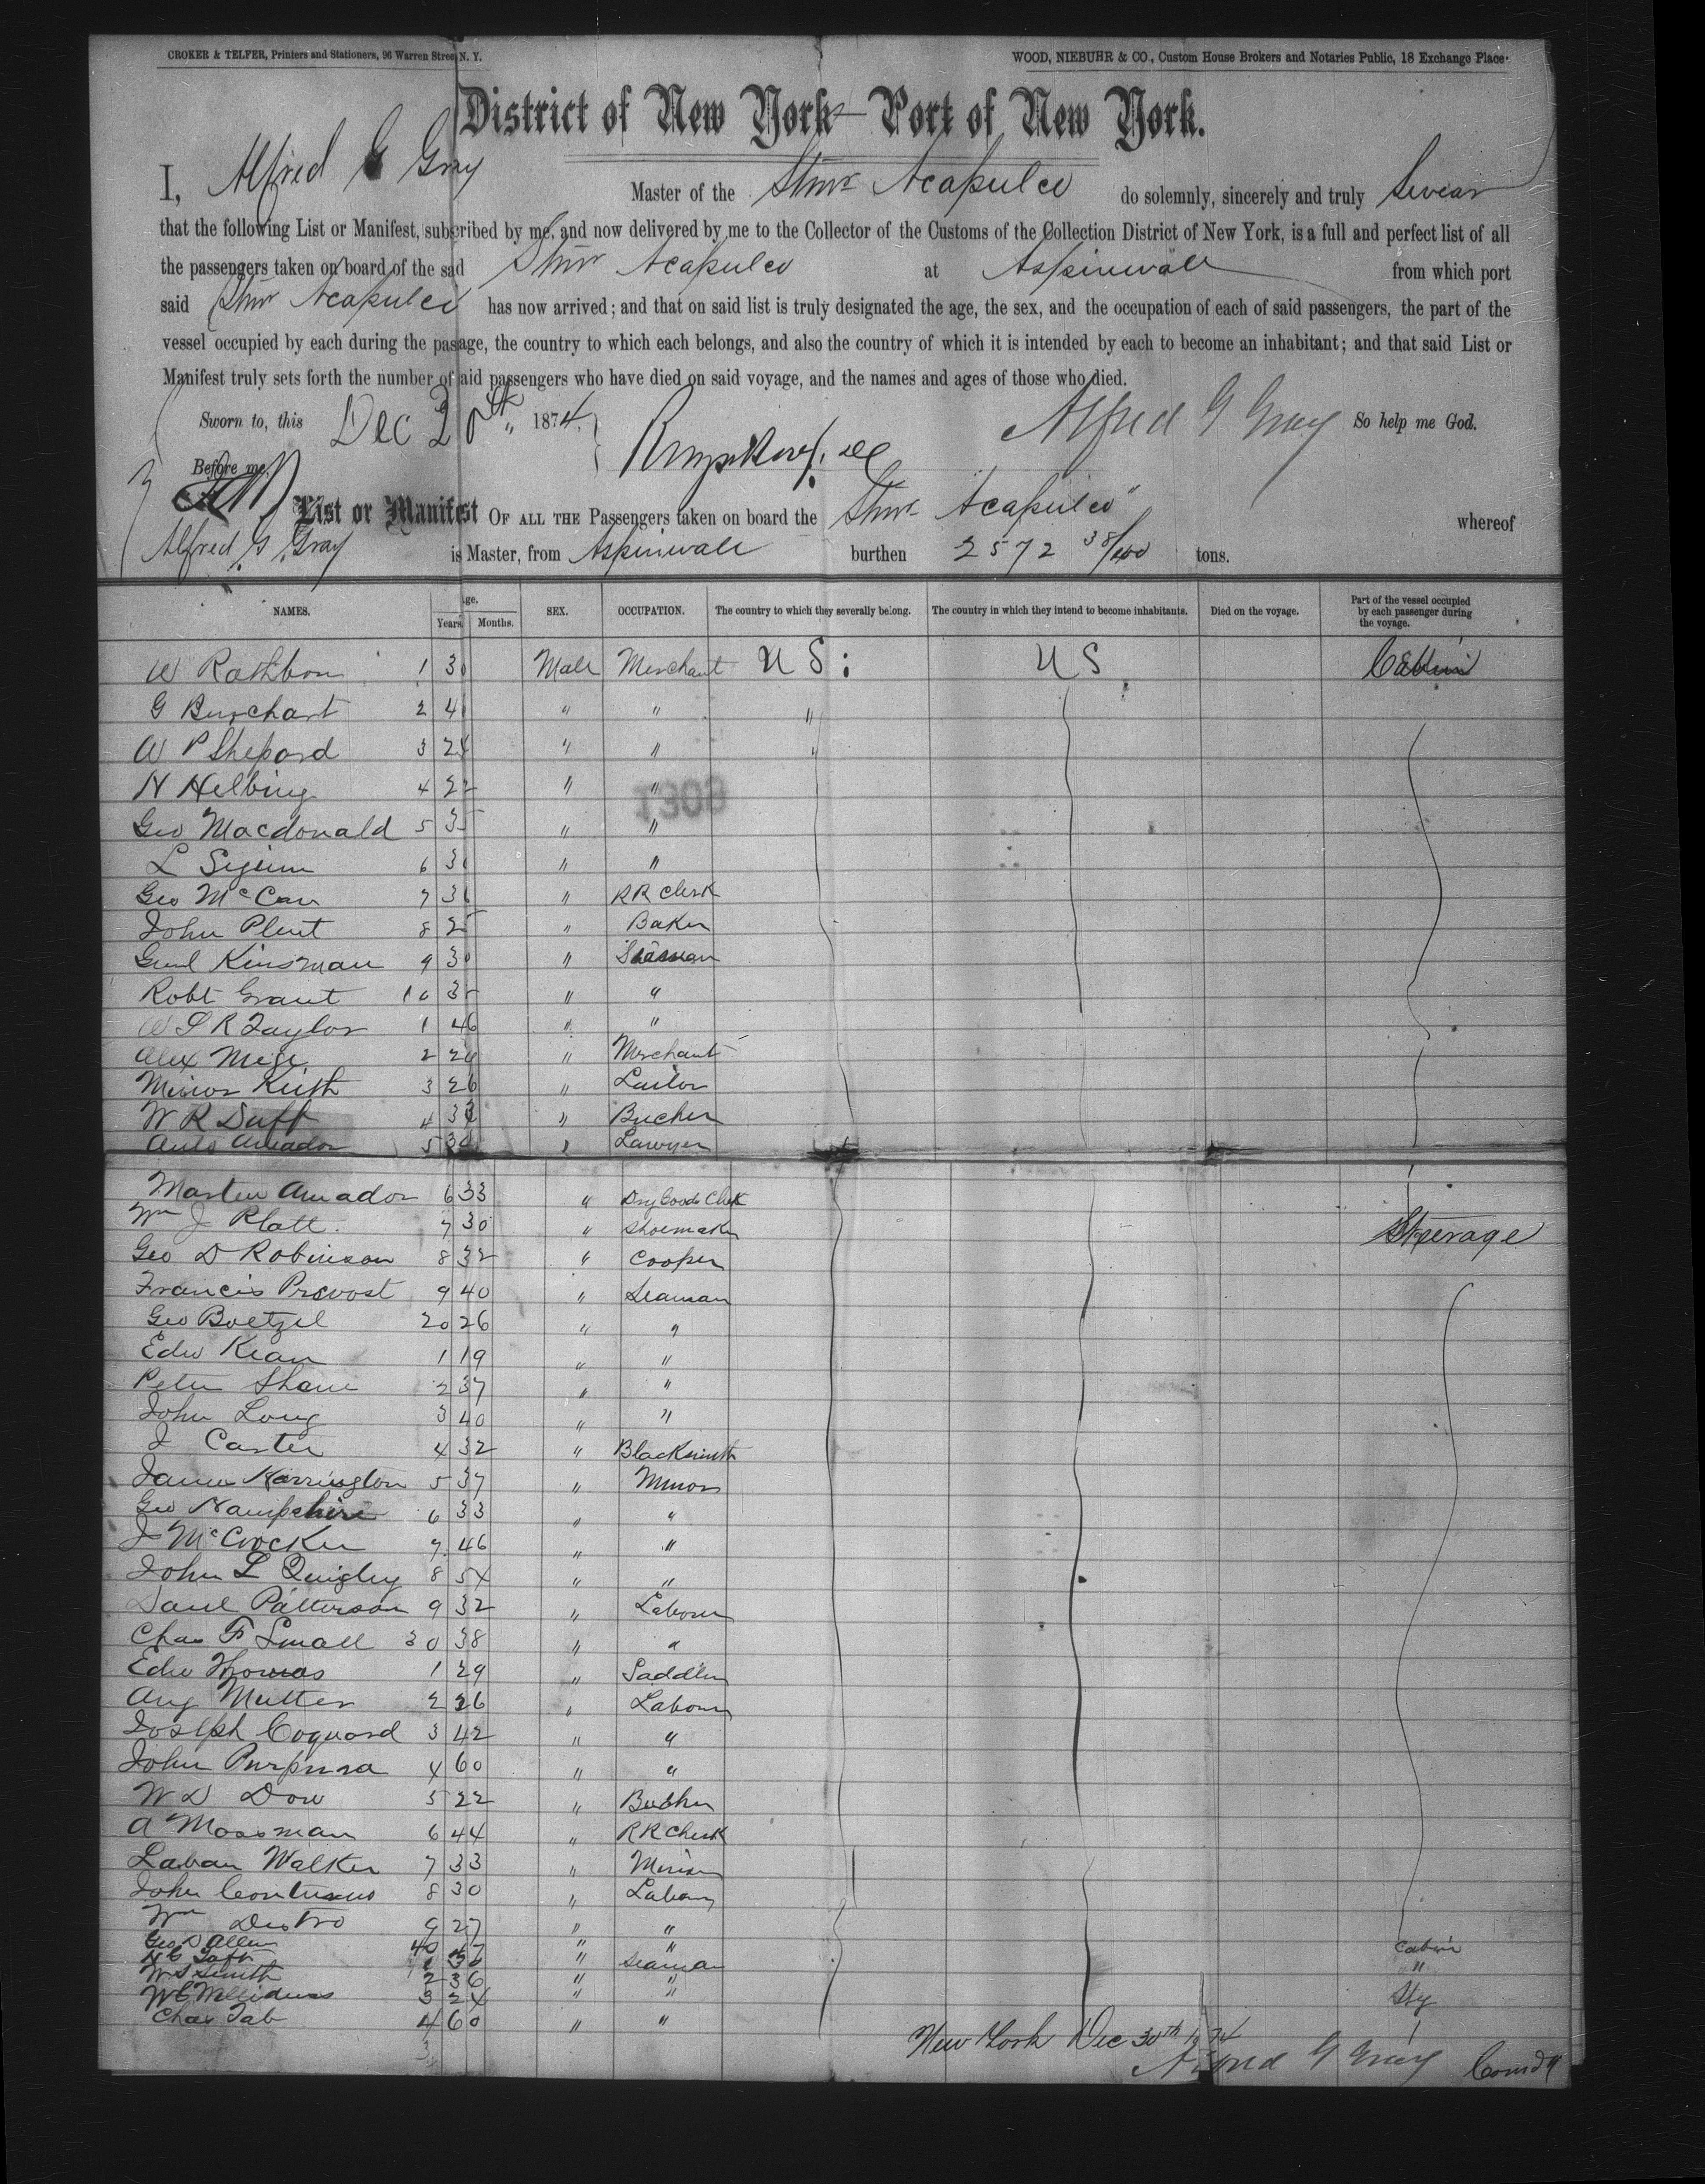 CROKER & TELFER, Printers and Stationers, 96 Warren Stree N. Y.
WOOD, NIEBUHR & CO., Custom House Brokers and Notaries Public, 18 Exchange Place.
District of New York—Port of New York.
I, Alfred G Gray Master of the Stmr Acapulco do solemnly, sincerely and truly Swear
that the following List or Manifest, subcribed by me, and now delivered by me to the Collector of the Customs of the Collection District of New York, is a full and perfect list of all
the passengers taken on board of the sad Stmr Acapulco at Aspinwall from which port
said Stmr Acapulco has now arrived; and that on said list is truly designated the age, the sex, and the occupation of each of said passengers, the part of the
vessel occupied by each during the pasage, the country to which each belongs, and also the country of which it is intended by each to become an inhabitant; and that said List or
Manifest truly sets forth the number of aid passengers who have died on said voyage, and the names and ages of those who died.
Sworn to, this Dec 30th 1874. Alfred G Gray So help me God.
Before me,
List or Manifest OF ALL THE Passengers taken on board the Stmr "Acapulco" whereof
Alfred G. Gray is Master, from Aspinwall burthen 2572 38/100 tons.
NAMES. Age. Years. Months. SEX. OCCUPATION. The country to which they severally belong. The country in which they intend to become inhabitants. Died on the voyage. Part of the vessel occupied by each passenger during the voyage.
W Rathbon 1 30 Male Merchant U S: U S Cabin
G Burchart 2 41 " " "
W P Shepard 3 24 " " "
H Helbing 4 22 " "
Geo Macdonald 5 35 " "
L 6 " "
Geo McCan 7 " RR Clerk
John Plent 8 25 " Baker
Kinsman 9 30 " Seaman
Robt Grant 10 35 " "
W S R Taylor 1 46 " "
Alex 2 " Merchant
Minor Keith 3 26 "
W R Duff 4 " Bucher
Amador 5 " Lawyer
Martin Amador 6 33 " Dry Goods Clek
Wm J Platt 7 30 " Shoemaker Steerage
Geo D Robinson 8 32 " Cooper
Francis Provost 9 40 " Seaman
Geo Boetzel 20 26 " "
Edw Kean 1 19 " "
Peter Shane 2 37 " "
John Long 3 40 " "
J Carter 4 32 " Blacksmith
James Harrington 5 37 " Minor
Geo Hampshire 6 33 " "
J McCrocker 7 46 " "
John L Quigley 8 54 " "
Danl Patterson 9 32 " Labour
Chas F Small 30 38 " "
Edw Thomas 1 29 " Saddler
Aug Mutter 2 26 " Labour
Joseph Coquard 3 42 " "
John Purpura 4 60 " "
W D Dow 5 22 " Butcher
A Mossman 6 44 " RR Clerk
Laban Walker 7 33 " Miner
John 8 30 " Labour
Wm Destro 9 27 " "
Geo D Allen 40 " " Cabin
H C Taft 1 " Seaman "
W S Smith 2 36 " " Stg
3 24 " "
Chas Tab 4 60 " "
New York Dec 30th 1874
Alfred G Gray Comdg